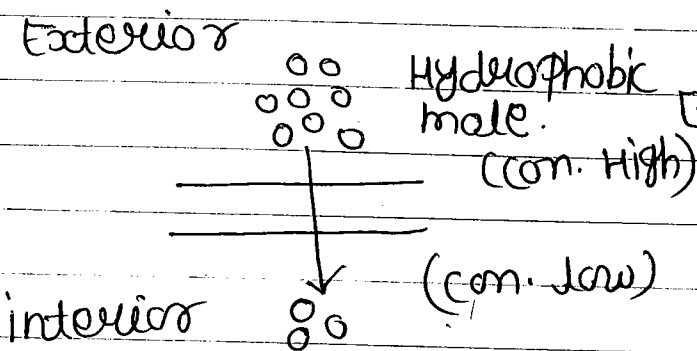 Exterior
Hydrophobic
mole.
(con. High)
(con. low)
interior